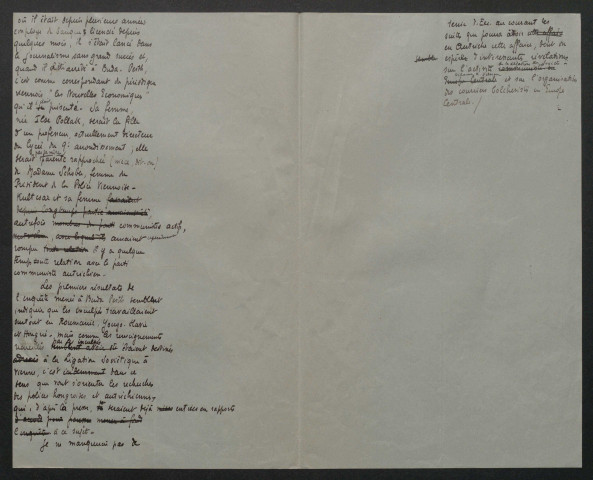 où il était depuis plusieurs années
employé de banque & licencié depuis
quelques mois, il s'était lancé dans
le journalisme sans grand succès et,
quand il fut arrêté à Buda-Pesth,
c'est comme correspondant du périodique
viennois "les Nouvelles Economiques"
qu'il s'était présenté. Sa femme,
née Ilse Pollak, serait la fille
d'un professeur actuellement directeur
du lycée du 9e arrondissement; elle
serait parente rapprochée (nièce, dit-on)
de Madame Schober, femme du
Président de la Police Viennoise.
et sa femme
autrefois membres du parti communistes actifs,
auraient
rompu il y a quelque
temps toute relation avec le parti
communiste autrichien.
Les premiers résultats de
l'enquête menée à Buda Pesth semblent
indiquer que les inculpés travaillaient
surtout en Roumanie, Yougo-Slavie
et Hongrie. Mais comme les renseignements
recueillis par les inculpés étaient destinés
à la Légation Soviétique à
Vienne, c'est dans ce
sens que vont s'orienter les recherches
des polices hongroise et autrichienne
qui, d'après la presse, seraient déjà entrées en rapports
à ce sujet.
Je ne manquerai pas de
tenir V. Exc. au courant des
suites que pourra avoir
en Autriche cette affaire, dont on
espère d'intéressantes révélations
sur l'activité
et sur l'organisation
des courriers bolchévistes en Europe
Centrale./.